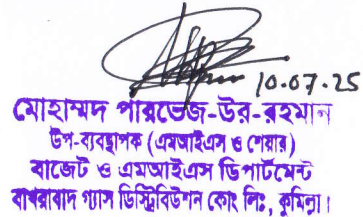 10.07.25
মোহাম্মদ পারভেজ-উর-রহমান
উপ-ব্যবস্থাপক (এমআইএস ও শেয়ার)
বাজেট ও এমআইএস ডিপার্টমেন্ট
বাখরাবাদ গ্যাস ডিস্ট্রিবিউশন কোং লিঃ, কুমিল্লা।